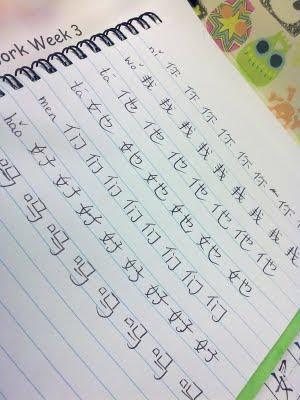 ork Week 3
nǐ 你 你 你 你 你 你 你
wǒ 我 我 我 我 我 我 我 我
tā 他 他 他 他 他 他 他
tā 她 她 她 她 她 她
men 们 们 们 们 们 们 们
hǎo 好 好 好 好 好 好 好 好
吗 吗 吗 吗 吗 吗 吗 吗